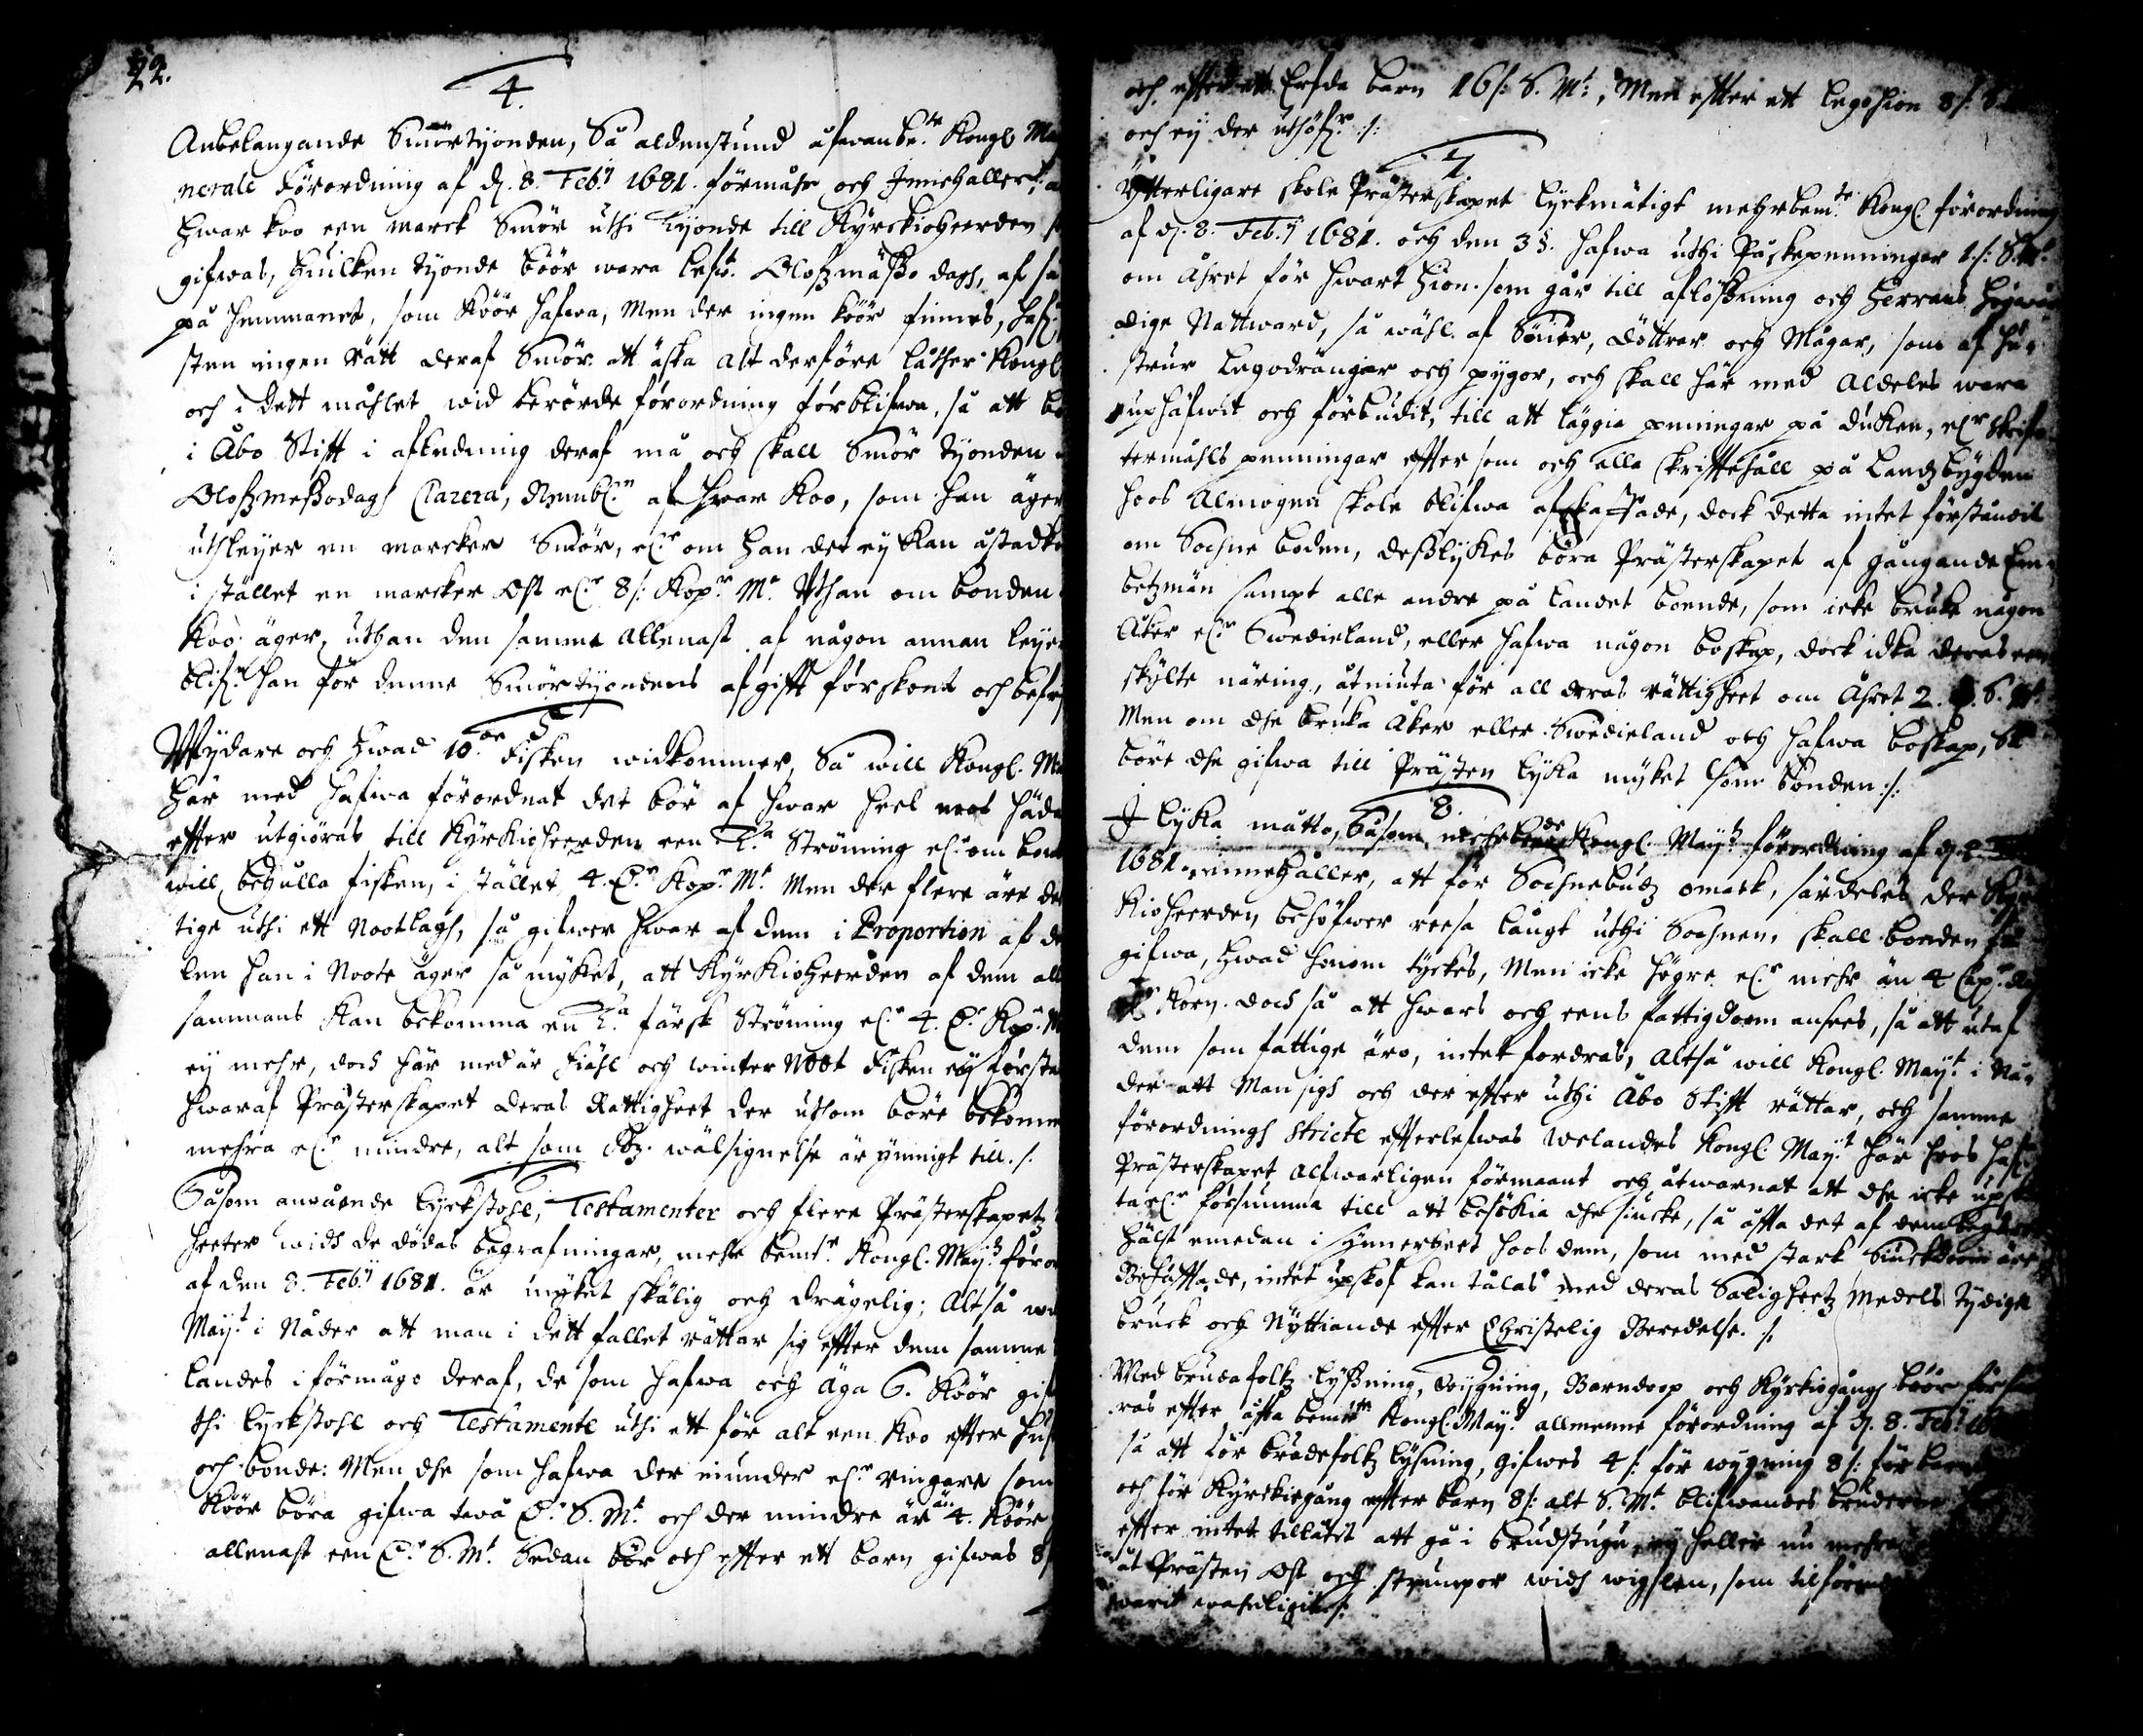 22.
4.
Anbelangande Smörtyonden, Så aldenstund åfwanbe:te Kongl. Ma
nerale Förordning af d. 8. Feb:ij 1681. förmåhr och Innehåller, a
hwar koo een marck Smör uthi Tyonde till Kyrckioheerden
gifwas, huilken tyonde böör wara lefw:t Olofzmässo dagh, af
på hemmanet, som Köör hafwa, Men der ingen köör finnes, haf
sten ingen rätt deraf Smör att äska alt derföre låther Kongl.
och i dett måhlet wid berörde förordning förblifwa, så att bo
i Åbo Stifft i afledning deraf må och skall Smör tyonden
Olofzmessodagh Clarera, Nembl:n af hwar Koo, som han äger
uthleyer en marcker Smör, el:r om han det ey kan åstadko
i stället en marcker Ost el:r 8 /: Kop:r M:t Uthan om bonden
Koo äger, uthan den samma allenast af någon annan leyer
blif:r han för denne Smörtyondens afgifft förskont och befry
5
Wydare och hwad 10:de Fisken widkommer, Så will Kongl. Ma
här med hafwa förordnat det bör af hwar heel noot häda
effter utgiöras till Kyrkioheerden een T:a Strömning el:r om bon
will behålla fisken, i stället 4. D:r Kop:r M:t Men der flere äre de
tige uthi ett Nootlagh, så gifwer hwar af dem i Proportion af de
len han i Noote äger så mykit, att Kyrkioheerden af dem all
sammans kan bekomma en T:a färsk Strömning el:r 4. D:r Kop:r M
ey mehr, doch här med är fiähl och winter Noot Fisken ey första
hwaraf Prästerskapet deras Rättigheet der uthom böre bekomm
mehra el:r mindre, alt som Gdz wälsignelse är ymnigt till. /.
6
Såsom anående Lyckstohl, Testamenter och flere Prästerskapetz
heeter widh de dödas begrafningar, mehr bem:te Kongl. May:tz föror
af den 8. Feb:ij 1681. är myket skälig och drägelig; Altså wi
May:t i Nåder att man i dett fallet rättar sig effter dem samma
landes i förmågo deraf, de som hafwa och äga 6. Köör gif
thi Lyckstohl och Testamente uthi ett för alt een Koo effter hus
och bonde: Men dhe som hafwa der munder el:r ringare som
Köör böra gifwa twå D:r S. M:t och der mindre är än 4. Köör
allenast een D:r S. M:t Sedan bör och effter ett barn gifwas 8/
och effter ett Erfda barn 16 /: S. M:t, Men effter ett legohion 8 /: S.
och ey der uthöf:r /:
7.
Ytterligare skole Prästerskapet Lyckmätigt mehrbem:te Kongl. förordning
af d. 8. Feb:ij 1681. och den 3 §. hafwa uthi Påskepenningar 1 /: S. M:t
om Åhret för hwart hion som går till aflössning och Herrans högwür
dige Nattward, så wähl af Söner, Döttrar och Mågar, som af hu
strur Legodrängar och pygor, och skall här med Aldeles wara
uphäfwit och förbudit, till att läggia peningar på duken, el:r skrif
termåhls penningar effter som och alla skrifftehåll på Landzbygden
hoos Almogen skole blifwa afskaffade, dock detta intet förståndit
om Sochne boden, desslykes böra Prästerskapet af gångande Em
betzmän sampt alle andre på landet boende, som icke bruka någon
Åker el:r Swedieland, eller hafwa någon boskap, dock idka deras een
skylte näring, åtniuta för all deras rättigheet om Åhret 2. S. M:t
Men om dhe bruka Åker eller Swedieland och hafwa boskap, Så
böre dhe gifwa till Prästen Lyka myket som Bonden :/:
8.
I lyka motto, såsom mehrbem:de Kongl. May:tz förordning af d. 8.
1681. innehåller, att för Sochnebudz omack, särdeles der Kyr
kioheerden behöfwer reesa långt uthi Sochnen, skall bonden
gifwa, hwad honom tyckes, Men icke högre el:r mehr än 4 Cap:r
Korn. doch så att hwars och eens fattigdoom ansees, så att utaf
dem som fattige äro, intet fordras, Altså will Kongl. May:t i Nå
der att Man sigh och der effter uthi Åbo Stifft rättar, och samma
förordningh stricte effterlefwas welandes Kongl. May:t här hoos haf
Prästerskapet alfwarligen förmaant och åtwarnat att dhe icke upsk
ta el:r försumma till att besökia dhe siucke, så offta det af dem begäres
hälst emedan i synnerheet hoos dem, som med stark Siuckdoom äre
Behäfftade, intet upskof kan tålas med deras Saligheetz Medels tydige
bruck och Nyttiande effter Christelig Beredelse. /.
9
Med brudafolkz Lyssning, Wygning, Barndoop och Kyrkiogång böör för
ras effter offta bem:te Kongl. May:tz allmenne förordning af d. 8. Feb:ij
så att för brudefolkz lysning, gifwes 4 /: för wygning 8 /: för barn
och för Kyrckiegång effter barn 8 /: alt S. M:t blifwandes
effter intet tillåtit att gå i brudstugu, ey heller nu mehra
åt Prästen Ost och strumpor widh wigslen, som tilförend
warit wahnligit /: